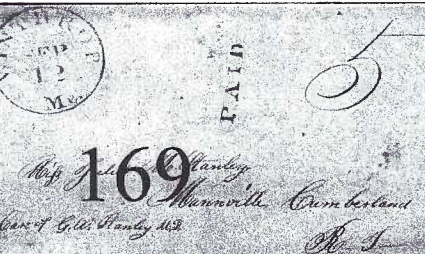 SEP
12
Me.
PAID
5
169
Miss Stanley
Mannville Cumberland
Care of G.W. Stanley M.D.
R I